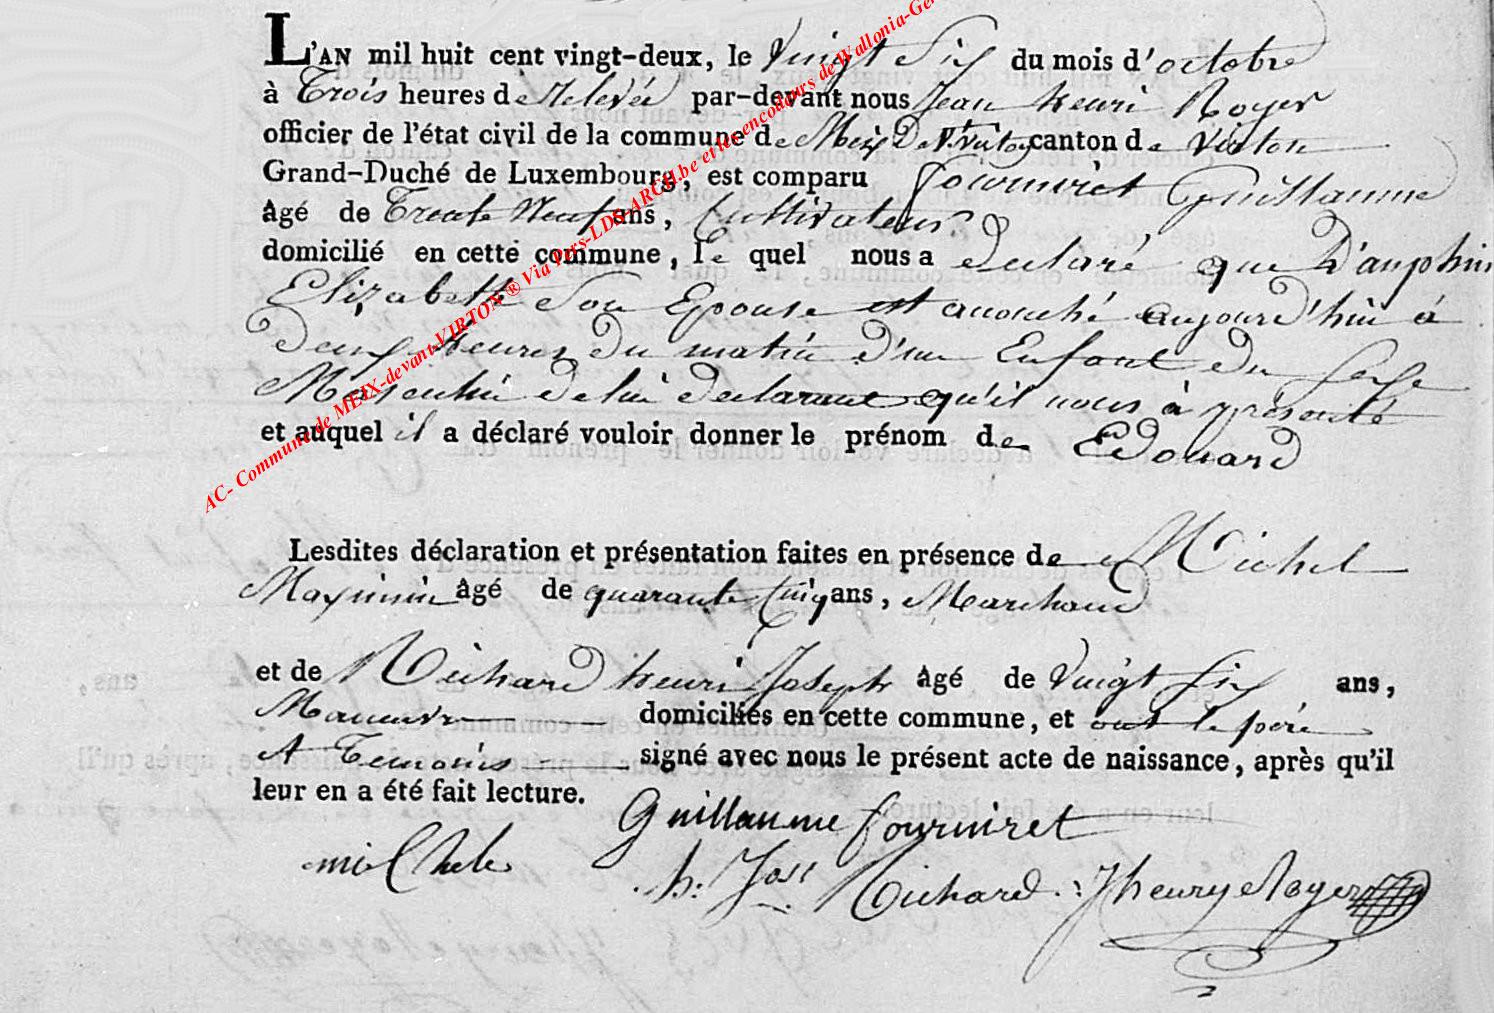 L'AN mil huit cent vingt-deux, le Vingt Six du mois d'octobre
à Trois heures de Relevée par-devant nous Jean henri Royer
officier de l'état civil de la commune de Meix Dt Virton canton de Virton
Grand-Duché de Luxembourg, est comparu fourniret Guillaume
âgé de Trente Neuf ans, Cultivateur
domicilié en cette commune, le quel nous a declaré que Dauphin
Elizabeth Son Epouse est accouché aujourd'hui à
Deux heures du matin d'un Enfant du Sexe
Masculin de lui declarant qu'il nous à présenté
et auquel il a déclaré vouloir donner le prénom de Edouard
Lesdites déclaration et présentation faites en présence de Michel
Maximin âgé de quarante Cinq ans, Marchand
et de Richard henri Joseph âgé de Vingt Six ans,
Manœuvre domiciliés en cette commune, et ont le père
et Temoins signé avec nous le présent acte de naissance, après qu'il
leur en a été fait lecture.
Guillaume fourniret
michele
h: Jos Richard. Jhenry Royer
AC- Commune de MEIX-devant-VIRTON ® Via Pers-LDS-ARCH.be et les encodeurs de Wallonia-Ge